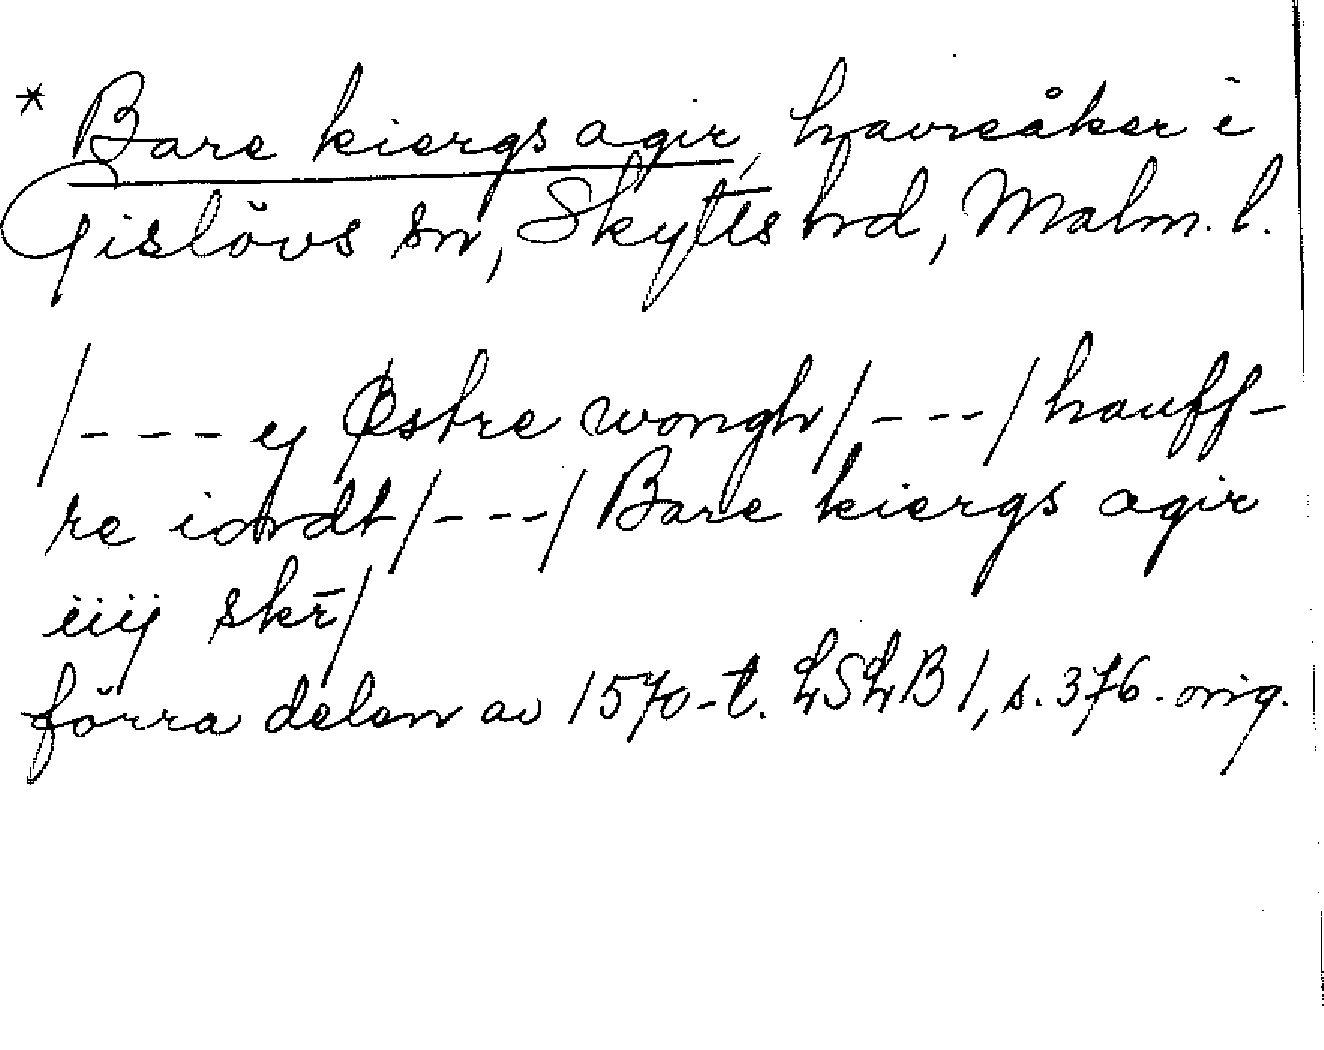 * Bare kiergs agir, havreåker i
Gislövs sn, Skytts hd, Malm. l.
/--- y Østre wongh/---/hauff-
re iordt/---/Bare kiergs agir
iiij skr̄/
förra delen av 1570-t. LSLB 1, s. 376. orig.